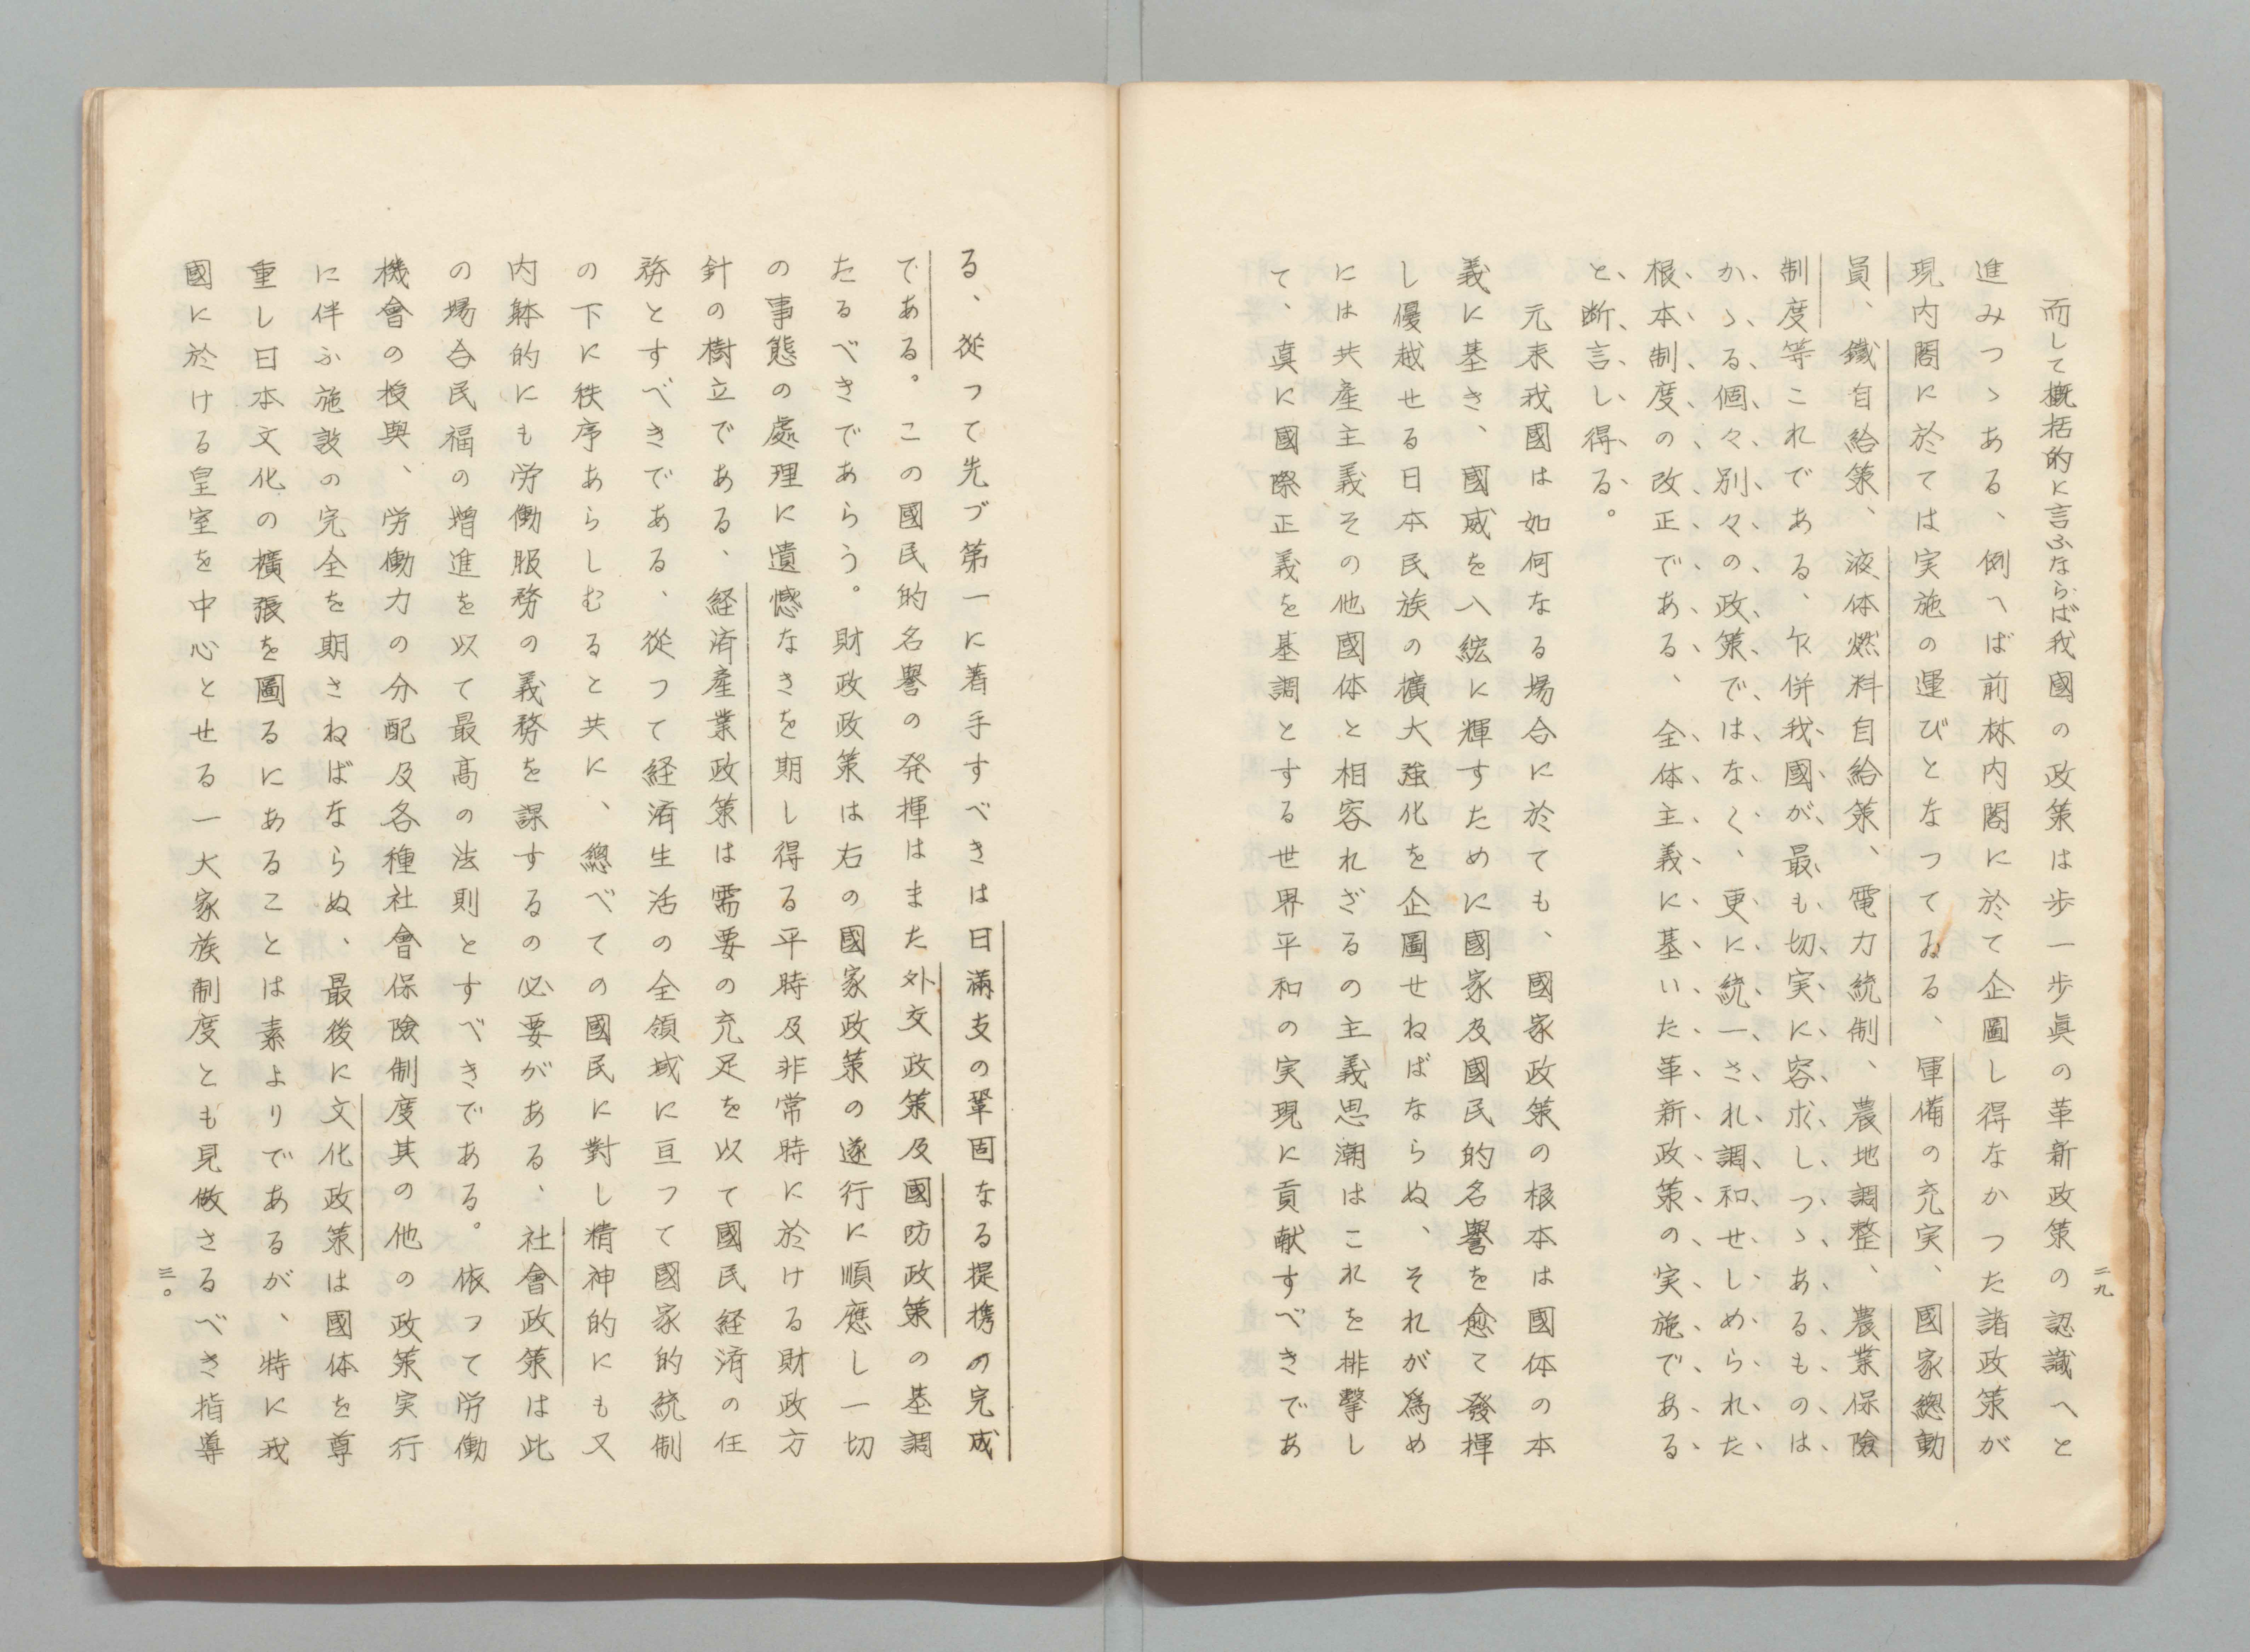 二九
而して概括的に言ふならば我國の政策は歩一歩眞の革新政策の認識へと
進みつゝある、例へば前林内閣に於て企圖し得なかつた諸政策が
現内閣に於ては実施の運びとなつてゐる、軍備の充実、國家總動
員、鐵自給策、液体燃料自給策、電力統制、農地調整、農業保険
制度等これである、乍併我國が最も切実に容求しつゝあるものは
かゝる個々別々の政策ではなく、更に統一され調和せしめられた
根本制度の改正である、全体主義に基いた革新政策の実施である
と断言し得る。
元来我國は如何なる場合に於ても、國家政策の根本は國体の本
義に基き、國威を八紘に輝すために國家及國民的名譽を愈て發揮
し優越せる日本民族の擴大強化を企圖せねばならぬ、それが爲め
には共産主義その他國体と相容れざるの主義思潮はこれを排撃し
て、真に國際正義を基調とする世界平和の実現に貢献すべきであ
る、從つて先づ第一に着手すべきは日滿支の鞏固なる提携の完成
である。この國民的名譽の発揮はまた外交政策及國防政策の基調
たるべきであらう。財政政策は右の國家政策の遂行に順應し一切
の事態の處理に遺憾なきを期し得る平時及非常時に於ける財政方
針の樹立である、経済産業政策は需要の充足を以て國民経済の任
務とすべきである、從つて経済生活の全領域に亘つて國家的統制
の下に秩序あらしむると共に、總べての國民に對し精神的にも又
内躰的にも労働服務の義務を課するの必要がある、社會政策は此
の場合民福の増進を以て最高の法則とすべきである。依つて労働
機會の授與、労働力の分配及各種社會保險制度其の他の政策実行
に伴ふ施設の完全を期さねばならぬ、最後に文化政策は國体を尊
重し日本文化の擴張を圖るにあることは素よりであるが、特に我
國に於ける皇室を中心とせる一大家族制度とも見做さるべき指導
三〇